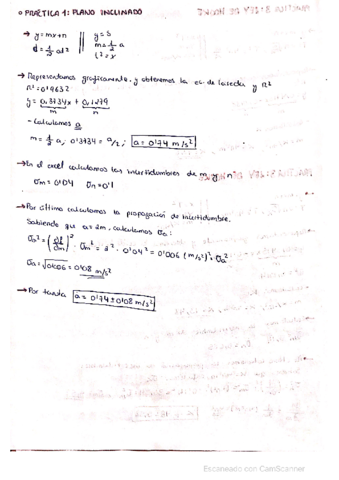 o PRÁCTICA 1: PLANO INCLINADO
→ y=mx+n || y=s
d=1/2 at² || m=1/2 a
t²=x
→ Representamos graficamente y obtenemos la ec. de la recta y R²
R²=0'9632
y= 0,3734x + 0,1479
m n
- Calculamos a
m=1/2 a, 0'3734 = a/2, a=0'74 m/s²
→ En el excel calculamos las incertidumbres de m y n
σm=0'04 σn=0'1
→ Por último calculamos la propagación de incertidumbre.
Sabiendo que a=2m, calculamos σa:
· σm² = 2² · 0'04² = 0'006 (m/s²)² = σa²
σa = √0'006 = 0'08 m/s²
→ Por tanto a = 0'74 ± 0'08 m/s²
Escaneado con CamScanner